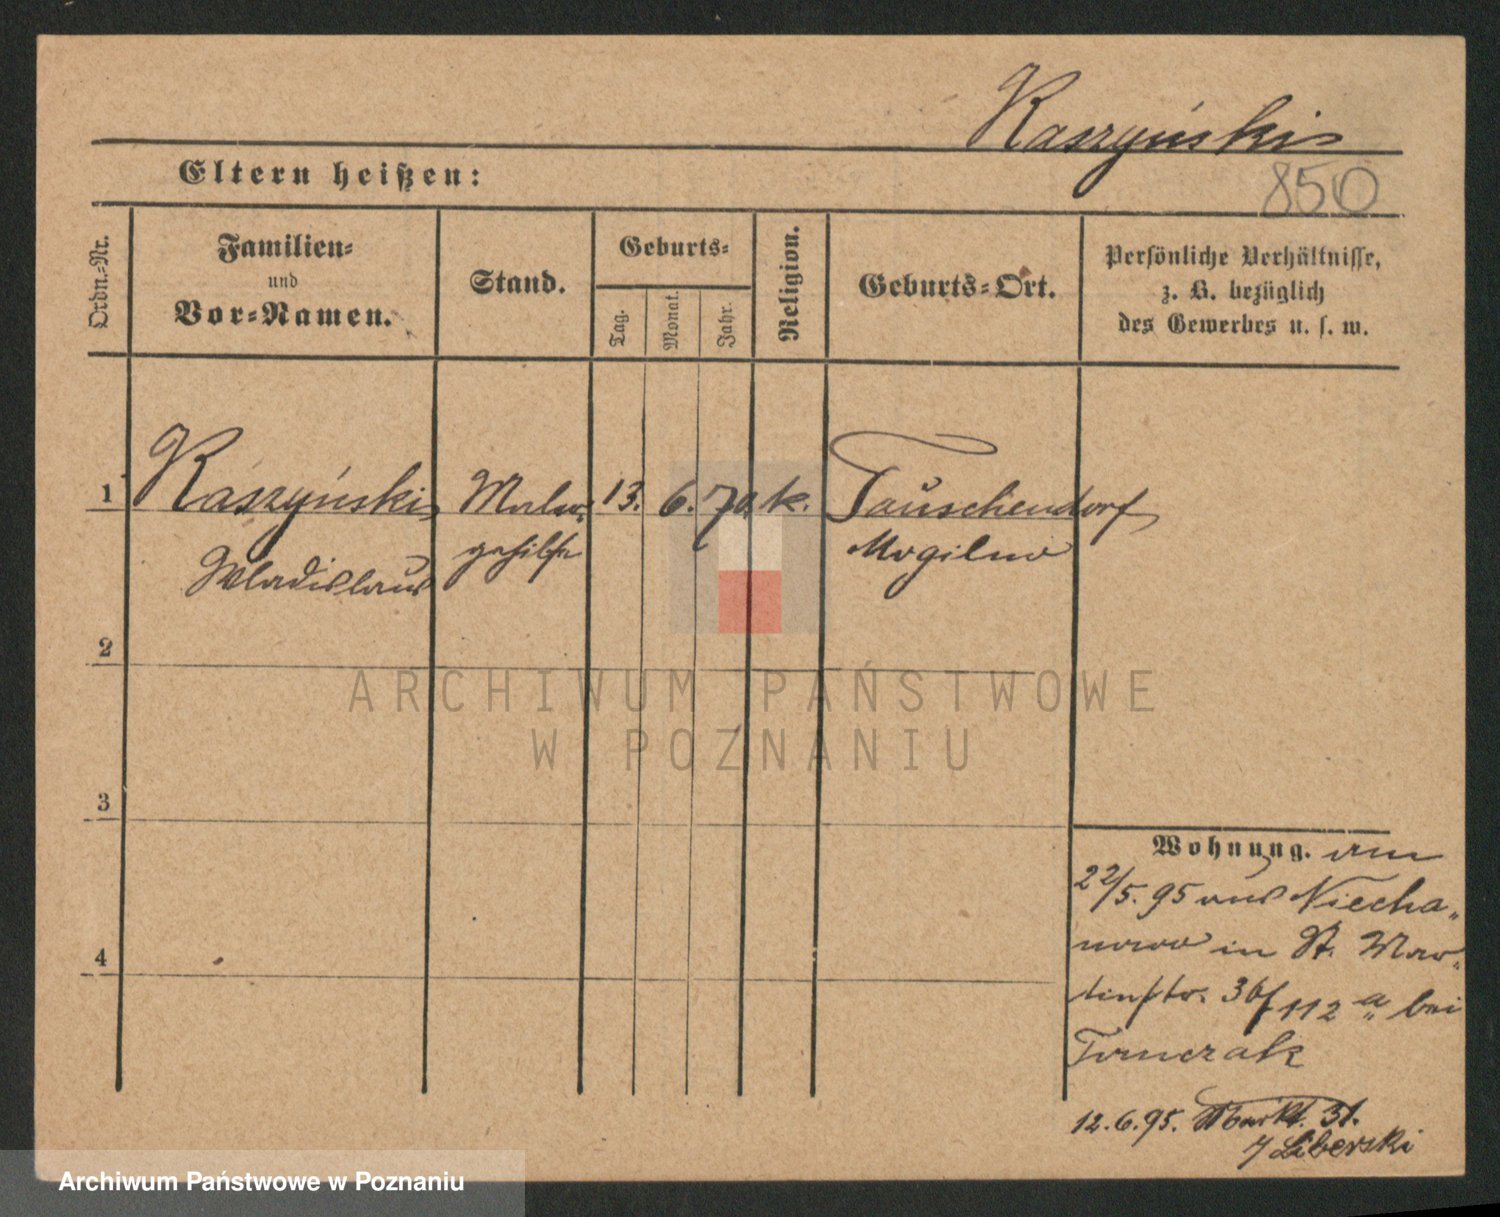 Raszyński
850
Eltern heißen:
Ordn.-Nr.
Familien-
und
Vor-Namen.
Stand.
Geburts-
Tag.
Monat.
Jahr.
Religion.
Geburts-Ort.
Persönliche Verhältnisse,
z. B. bezüglich
des Gewerbes u. s. w.
1 Raszyński Maler- 13. 6. 70. k. Tauschendorf
Wladislaus gehilfe Mogilno
2
3
4
ARCHIWUM PAŃSTWOWE
W POZNANIU
Wohnung. am
22/5. 95 aus Niecha-
nowo in St. Mar-
tinstr. 36/112 a bei
Tomczak
12. 6. 95. Markt. 51.
Liberski
Archiwum Państwowe w Poznaniu